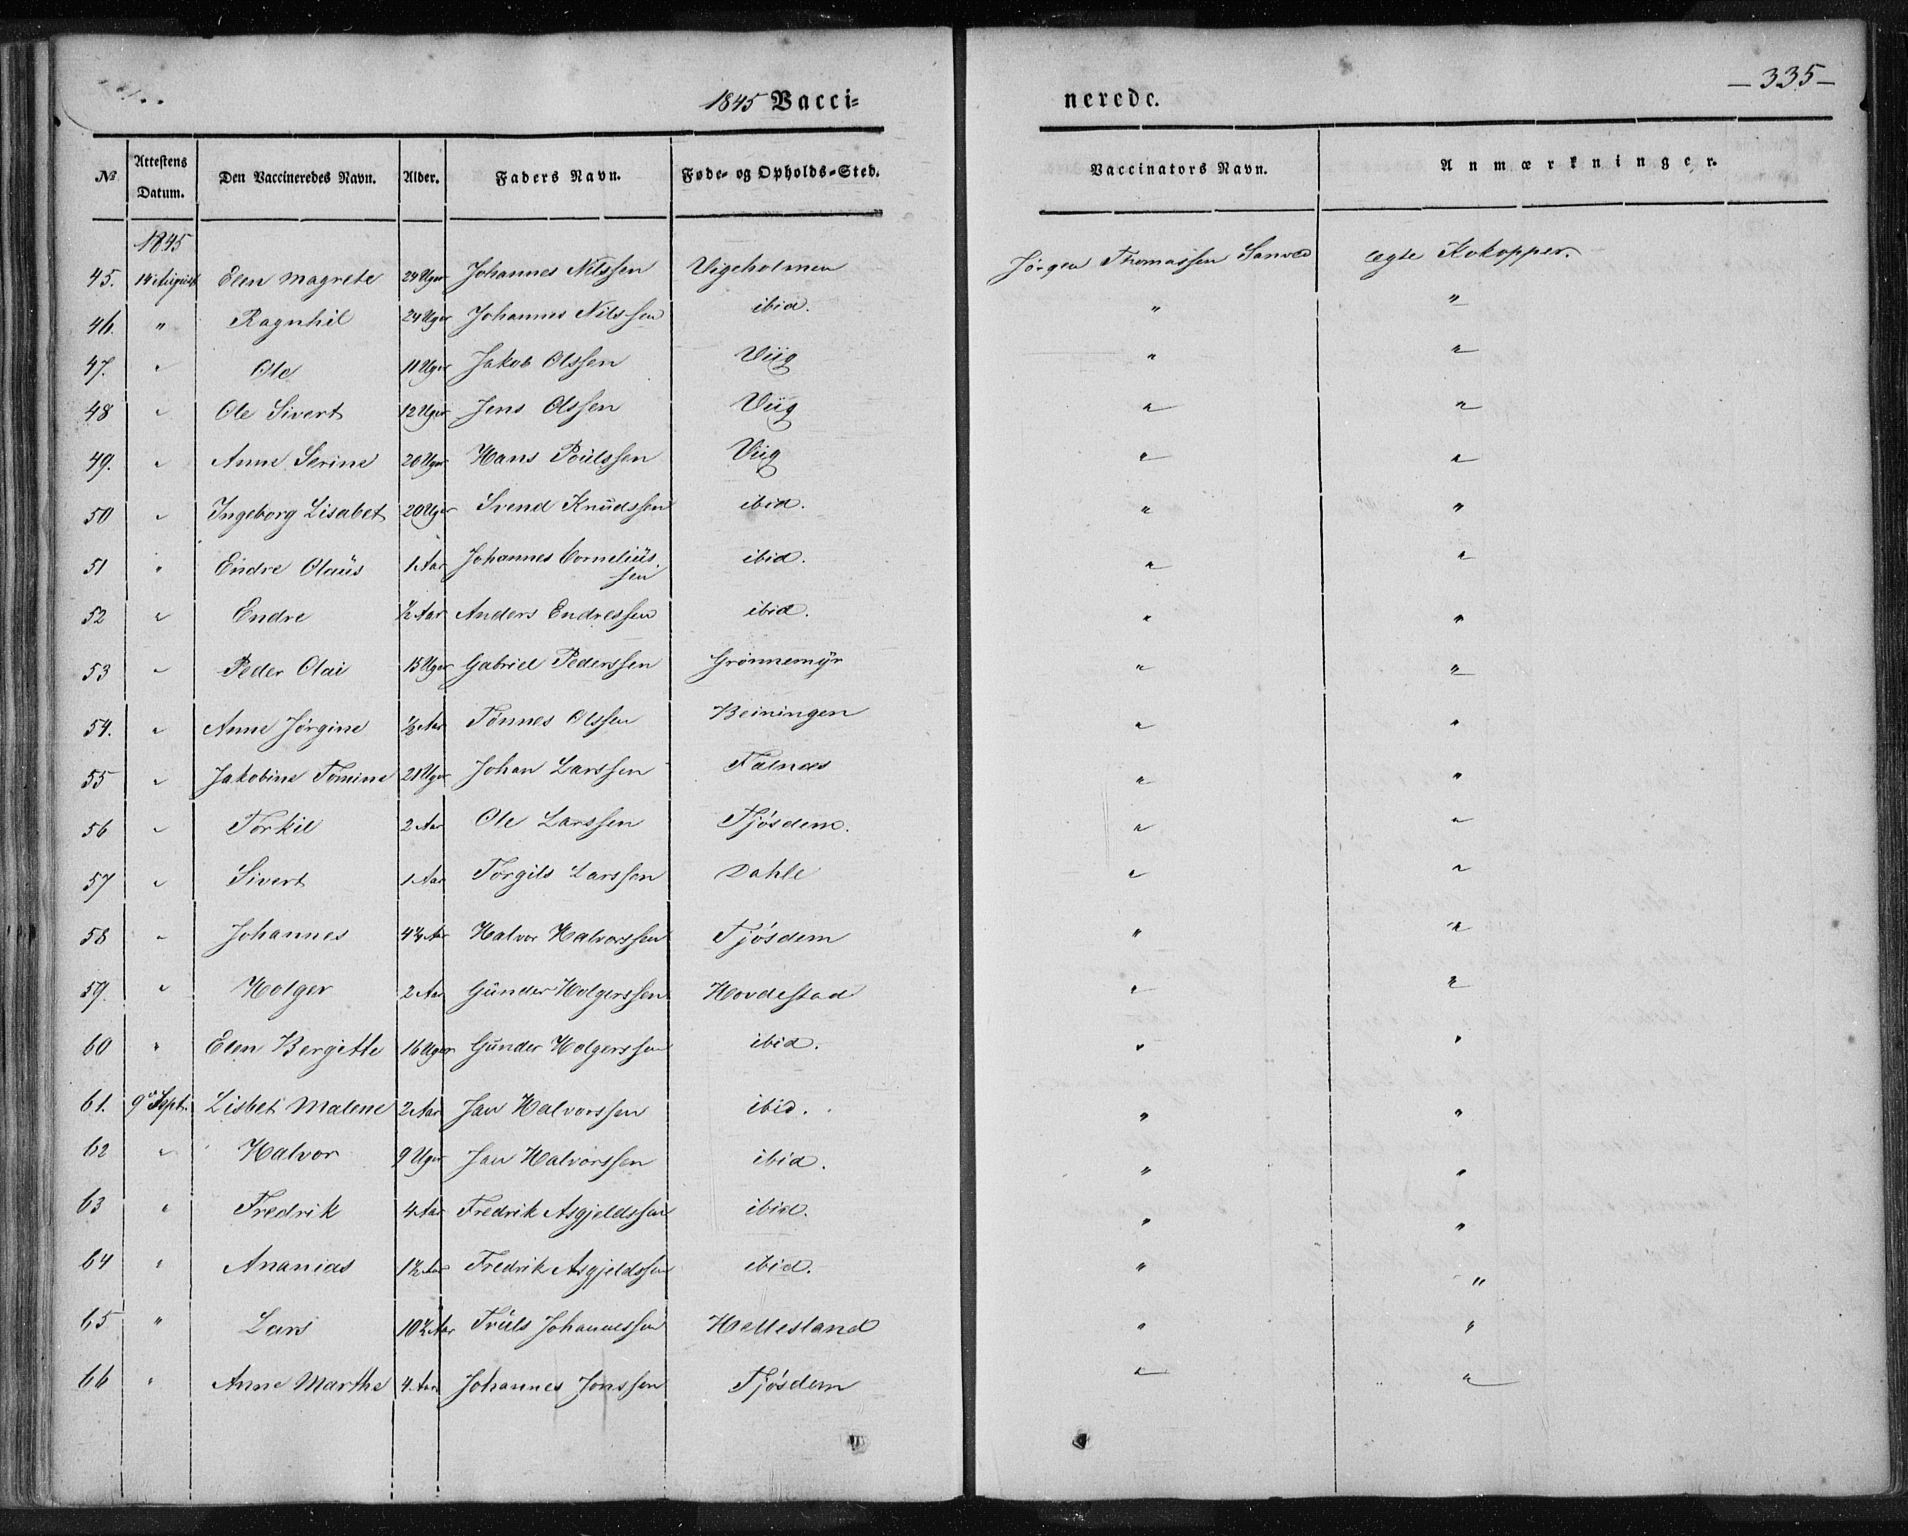 1845 Vacci= nerede. —335—
№ Attestens Datum. Den Vaccineredes Navn. Alder. Faders Navn. Føde- og Opholds-Sted. Vaccinators Navn. Anmærkninger.
1845
45. 14 August Elen Magrete 24 Uger Johannes Nilssen Vigeholmen Jörgen Thomassen ægte Kokopper.
46. " Ragnhil 24 Uger Johannes Nilssen ibid. " "
47. " Ole 11 Uger Jakob Olssen Viig " "
48 " Ole Sivert 12 Uger Jens Olssen Viig " "
49. " Anne Serine 20 Uger Hans Poülssen Viig " "
50 " Ingeborg Lisabet 20 Uger Svend Knüdssen ibid. " "
51 " Endre Olaüs 1 Aar Johannes Corneliüs- ibid. " "
sen
52 " Endre ½ Aar Anders Endressen ibid. " "
53 " Peder Olai 15 Uger Gabriel Pederssen Grönnemyr " "
54. " Anne Jörgine ½ Aar Tönnes Olssen Beiningen " "
55 " Jakobine Tomine 21 Uger Johan Larssen Falnæs " "
56 " Torkil 2 Aar Ole Larssen Tjösdem. " "
57 " Sivert 1 Aar Torgils Larssen Dahle " "
58 " Johannes 4½ Ar Halvor Halvorssen Tjösdem " "
59. " Holger 2 Aar Günder Holgerssen Hovdestad " "
60 " Elen Bergitte 16 Uger Günder Holgerssen ibid. " "
61. 9 Sept. Lisbet Malene 2 Aar Jan Halvorssen ibid. " "
62 " Halvor 9 Uger Jan Halvorssen ibid. " "
63 " Fredrik 4 Aar Fredrik Asgjeldssen ibid. " "
64 " Ananias 1½ Aar Fredrik Asgjeldssen ibid. " "
65 " Lars 10½ Aar Trüls Johannessen Hellesland " "
66 " Anne Marthe 4 Aar Johannes Jonssen Tjösdem " "